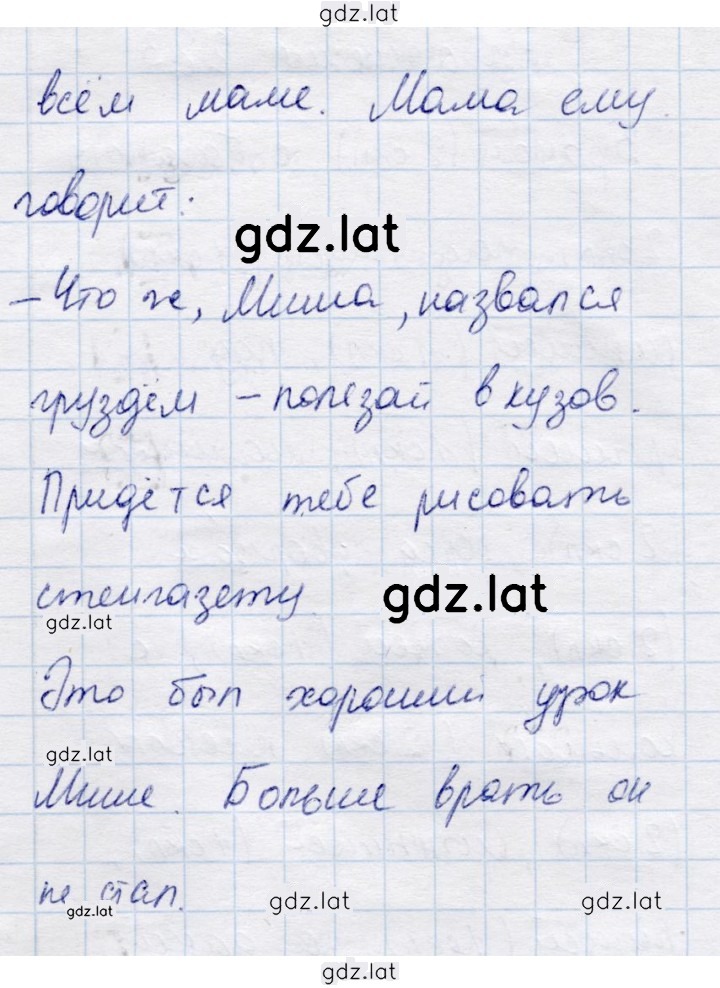 gdz.lat
всём маме. Мама ему
говорит:
gdz.lat
– Что ж, Миша, назвался
груздём – полезай в кузов.
Придётся тебе рисовать
стенгазету
gdz.lat
gdz.lat
Это был хороший урок
gdz.lat
Мише. Больше врать он
не стал.
gdz.lat
gdz.lat
gdz.lat
gdz.lat